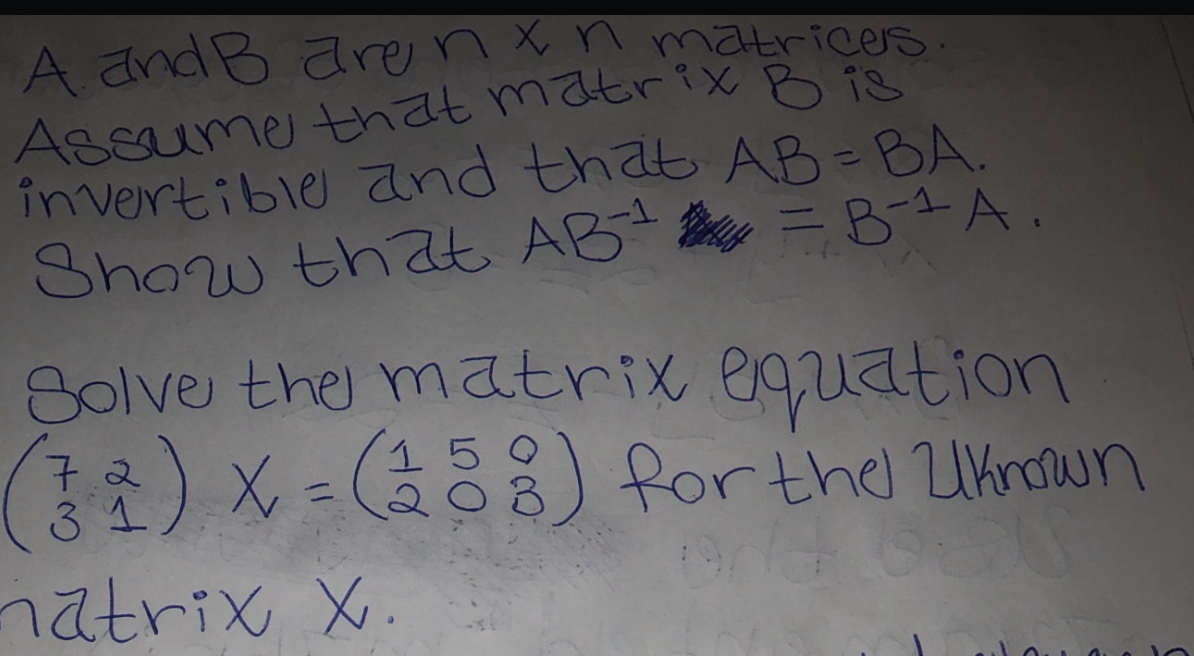 A and B are n x n matrices.
Assume that matrix B is
invertible and that AB = BA.
Show that AB⁻¹ = B⁻¹A.
Solve the matrix equation
(7 2
3 1) X = (1 5 0
2 0 3) for the Uknown
matrix X.